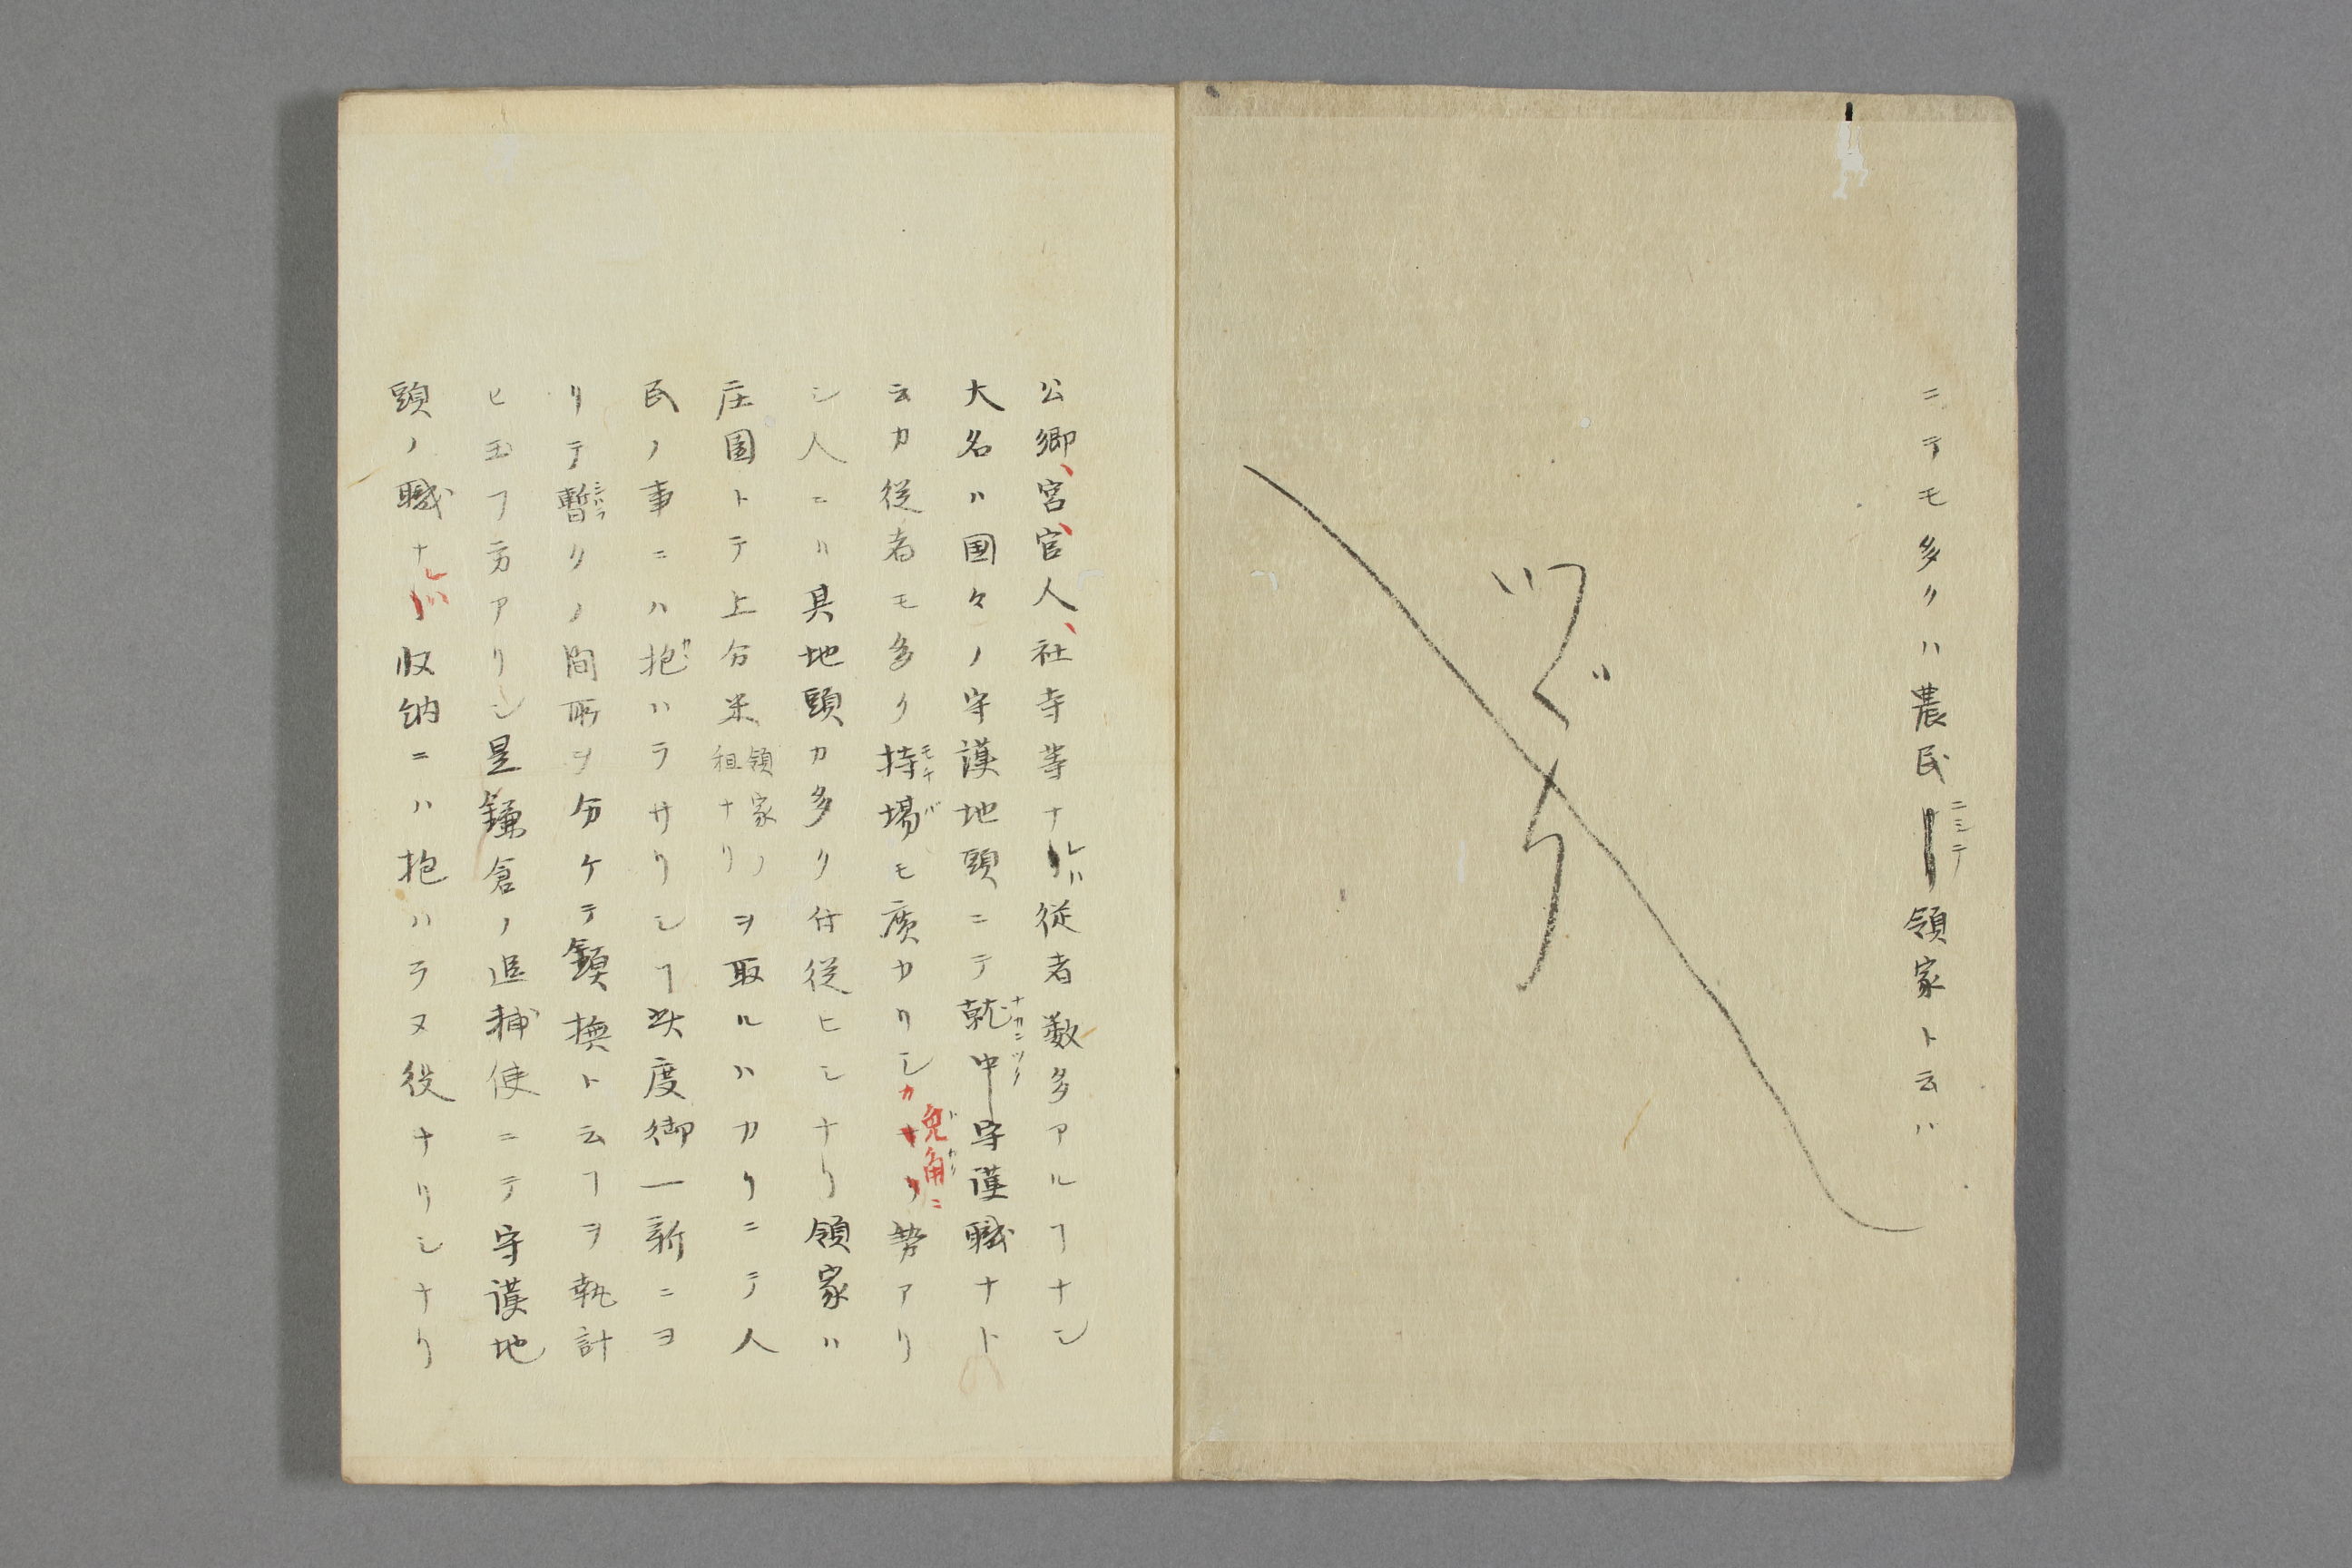 ニテモ多クハ農民ニシテ領家ト云ハ
ツヾク
公卿、宮、官人、社寺等ナレハ従者数多アルヿナシ
大名ハ国々ノ守護地頭ニテ就中守護職ナト
ナカンツク
云カ従者モ多ク持場モ広カリシカ兎角ニ勢アリ
モチバ
トカク
シ人ニハ其地頭カ多ク付従ヒシナリ領家ハ
庄園トテ上分米領家ノ租ナリヲ取ルハカリニテ人
民ノ事ニハ抱ハラサリシヿ此度御一新ニヨ
カヽ
リテ暫クノ間所ヲ分ケテ鎮撫ト云ヿヲ執計
シハラ
ヒ玉フ方アリシ是鎌倉ノ追補使ニテ守護地
頭ノ職ナレバ収納ニハ抱ハラヌ役ナリシナリ